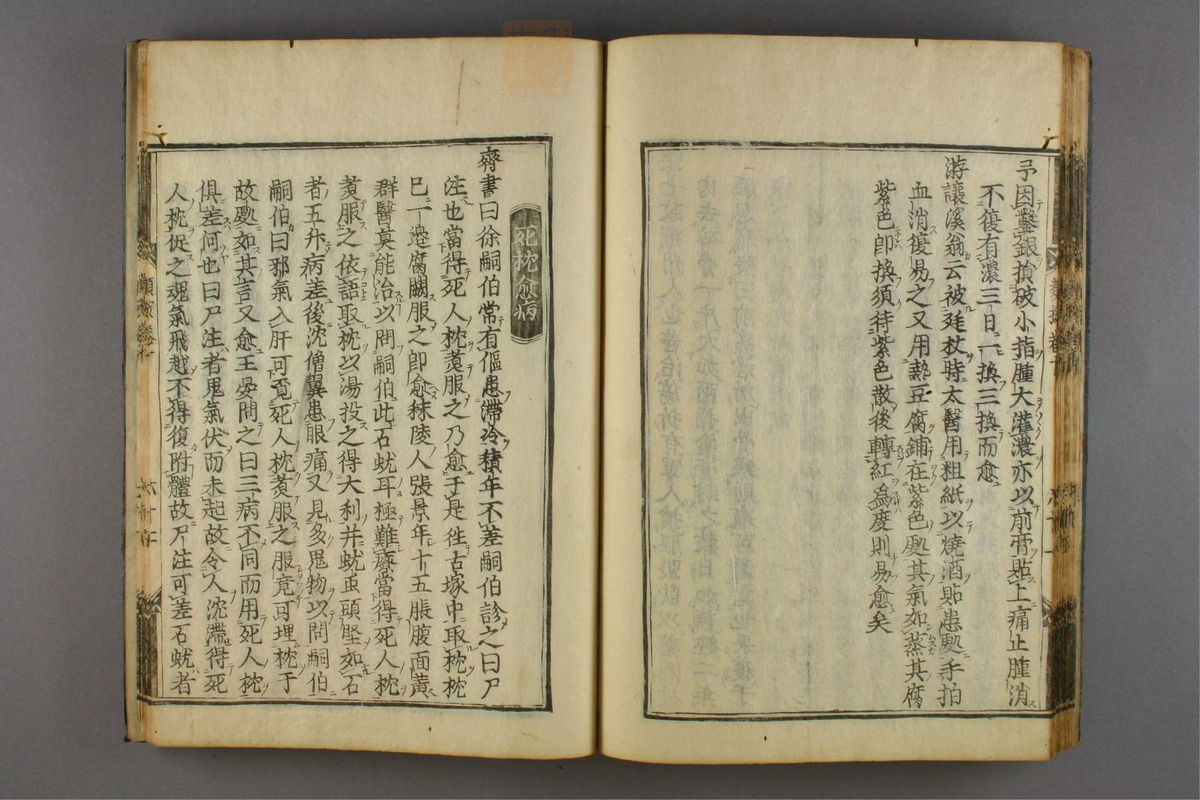 予因鑿銀損破小指腫大灌濃亦以前膏貼上痛止腫消
不復有濃三日一換三換而愈
游讓溪翁云被廷杖時太醫用粗紙以燒酒貼患處手拍
血消復易之又用熱豆腐鋪在紫色處其氣如蒸其腐
紫色即換須待紫色散後轉紅為度則易愈矣
死枕愈病
齊書曰徐嗣伯常有傴患滯冷積年不差嗣伯診之曰尸
注也當得死人枕煑服之乃愈于是徃古塚中取枕枕
已一邊腐闕服之即愈秣陵人張景年十五脹腹面黃
群醫莫能治以問嗣伯此石蚘耳極難療當得死人枕
煑服之依語取枕以湯投之得大利并蚘䖝頭堅如石
者五升病差後沈僧翼患眼痛又見多鬼物以問嗣伯
嗣伯曰邪氣入肝可覓死人枕煑服之服竟可埋枕于
故處如其言又愈王晏問之曰三病不同而用死人枕
俱差何也曰尸注者鬼氣伏而未起故令人沈滯得死
人枕促之魂氣飛越不得復附體故尸注可差石蚘者